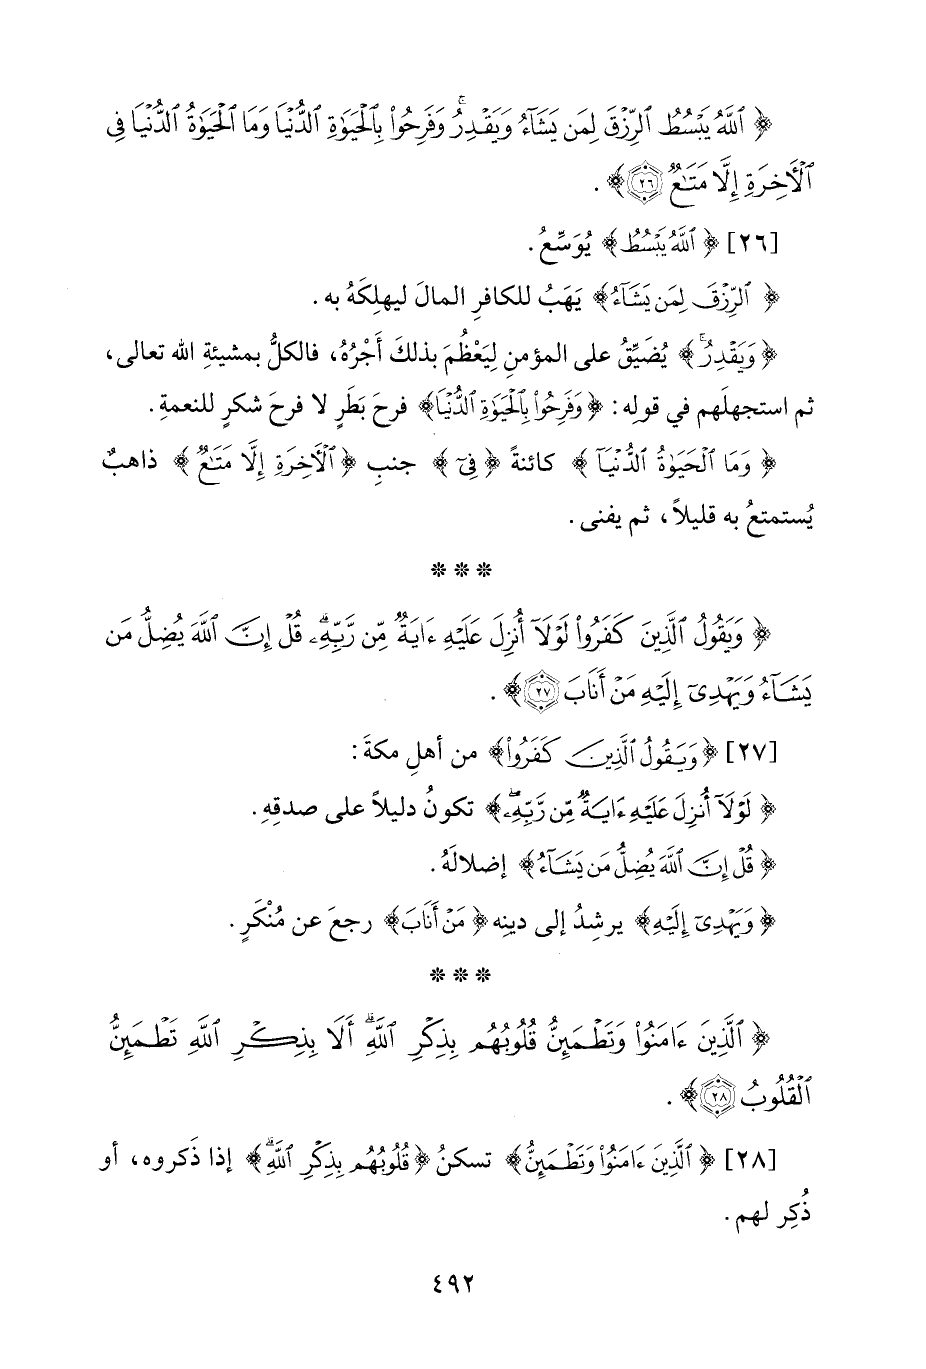 ﴿ ٱللَّهُ يَبْسُطُ ٱلرِّزْقَ لِمَن يَشَآءُ وَيَقْدِرُ ۚ وَفَرِحُوا۟ بِٱلْحَيَوٰةِ ٱلدُّنْيَا وَمَا ٱلْحَيَوٰةُ ٱلدُّنْيَا فِى
ٱلْأَخِرَةِ إِلَّا مَتَٰعٌ ﴿٢٦﴾ ﴾ .
[٢٦] ﴿ ٱللَّهُ يَبْسُطُ ﴾ يُوَسِّعُ .
﴿ ٱلرِّزْقَ لِمَن يَشَآءُ ﴾ يَهَبُ للكافرِ المالَ ليهلِكَهُ به .
﴿ وَيَقْدِرُ ۚ ﴾ يُضَيِّقُ على المؤمنِ لِيَعْظُمَ بذلكَ أَجْرُهُ، فالكلُّ بمشيئةِ الله تعالى،
ثم استجهلَهم في قولِه: ﴿ وَفَرِحُوا۟ بِٱلْحَيَوٰةِ ٱلدُّنْيَا ﴾ فرحَ بَطَرٍ لا فرحَ شكرٍ للنعمةِ.
﴿ وَمَا ٱلْحَيَوٰةُ ٱلدُّنْيَآ ﴾ كائنةً ﴿ فِىٓ ﴾ جنبِ ﴿ ٱلْأَخِرَةِ إِلَّا مَتَٰعٌ ﴾ ذاهبٌ
يُستمتعُ به قليلاً، ثم يفنى .
❊ ❊ ❊
﴿ وَيَقُولُ ٱلَّذِينَ كَفَرُوا۟ لَوْلَآ أُنزِلَ عَلَيْهِ ءَايَةٌ مِّن رَّبِّهِۦ ۗ قُلْ إِنَّ ٱللَّهَ يُضِلُّ مَن
يَشَآءُ وَيَهْدِىٓ إِلَيْهِ مَنْ أَنَابَ ﴿٢٧﴾ ﴾ .
[٢٧] ﴿ وَيَقُولُ ٱلَّذِينَ كَفَرُوا۟ ﴾ من أهلِ مكةَ:
﴿ لَوْلَآ أُنزِلَ عَلَيْهِ ءَايَةٌ مِّن رَّبِّهِۦ ۗ ﴾ تكونُ دليلاً على صدقِهِ.
﴿ قُلْ إِنَّ ٱللَّهَ يُضِلُّ مَن يَشَآءُ ﴾ إضلالَهُ.
﴿ وَيَهْدِىٓ إِلَيْهِ ﴾ يرشِدُ إلى دينِه ﴿ مَنْ أَنَابَ ﴾ رجعَ عن مُنْكَرٍ.
❊ ❊ ❊
﴿ ٱلَّذِينَ ءَامَنُوا۟ وَتَطْمَئِنُّ قُلُوبُهُم بِذِكْرِ ٱللَّهِ ۗ أَلَا بِذِكْرِ ٱللَّهِ تَطْمَئِنُّ
ٱلْقُلُوبُ ﴿٢٨﴾ ﴾ .
[٢٨] ﴿ ٱلَّذِينَ ءَامَنُوا۟ وَتَطْمَئِنُّ ﴾ تسكنُ ﴿ قُلُوبُهُم بِذِكْرِ ٱللَّهِ ۗ ﴾ إذا ذَكروه، أو
ذُكِر لهم .
٤٩٢